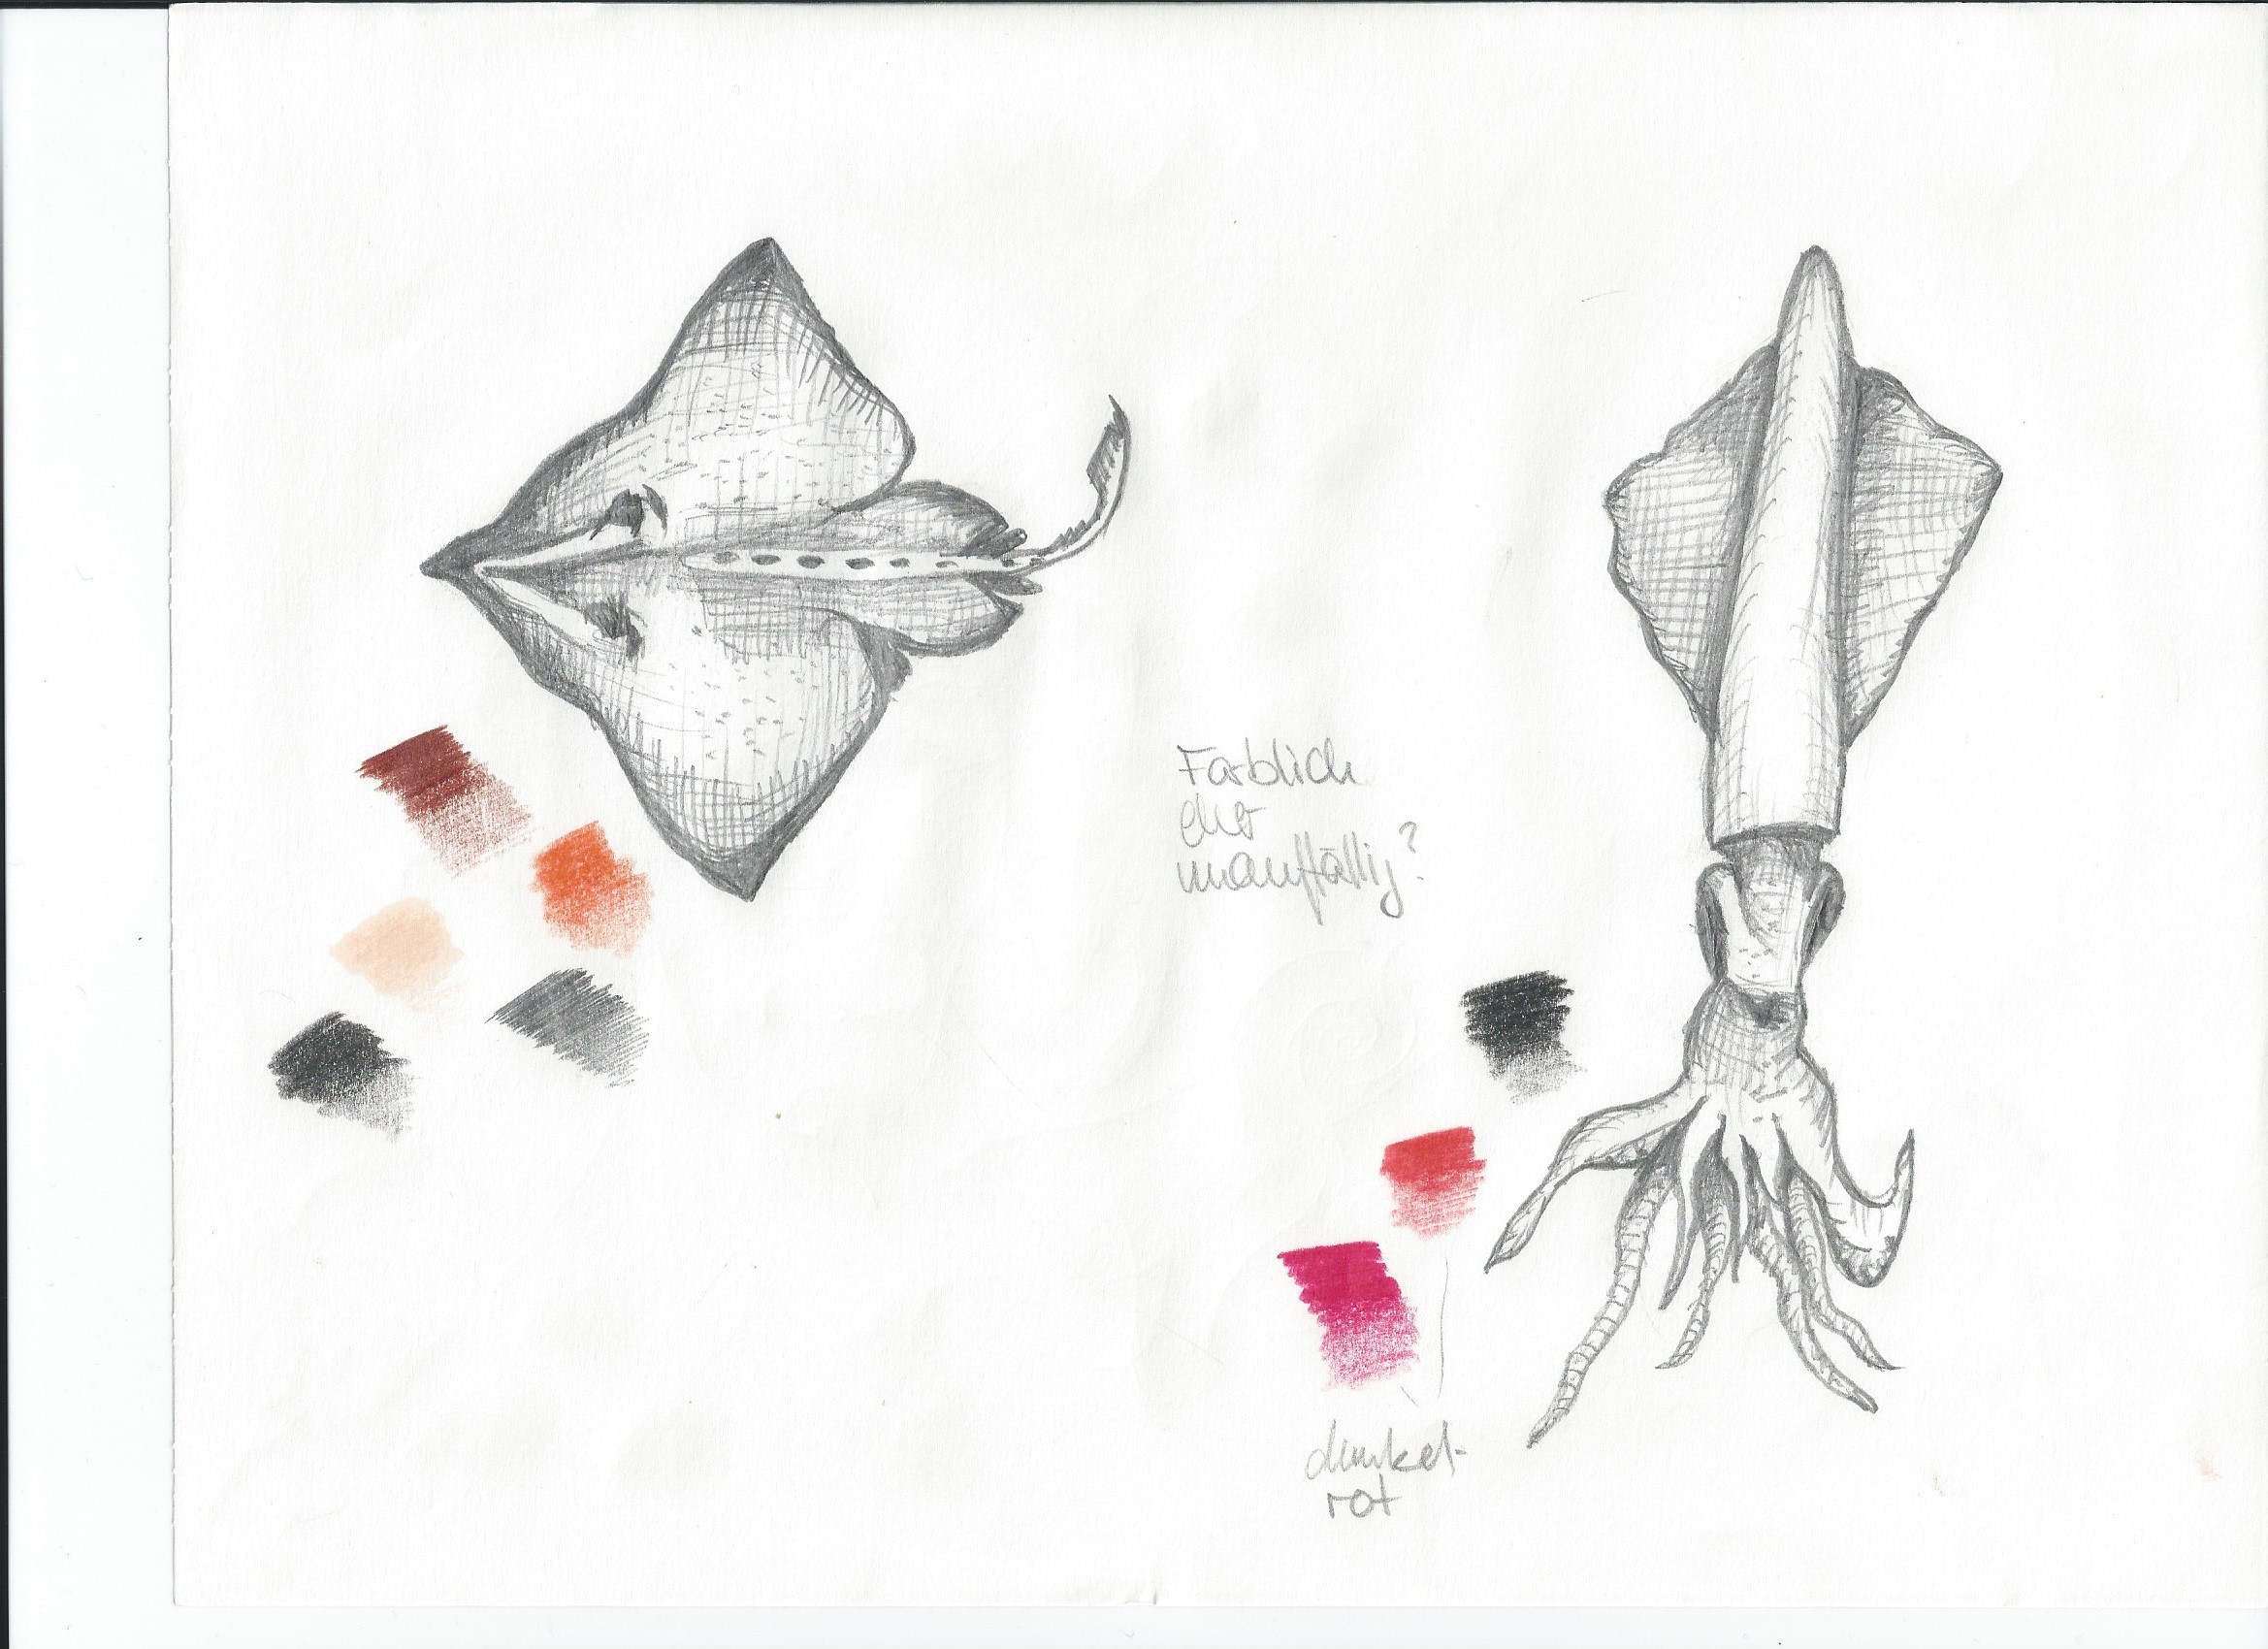 Farblich
eher
unauffällig?
dunkel-
rot